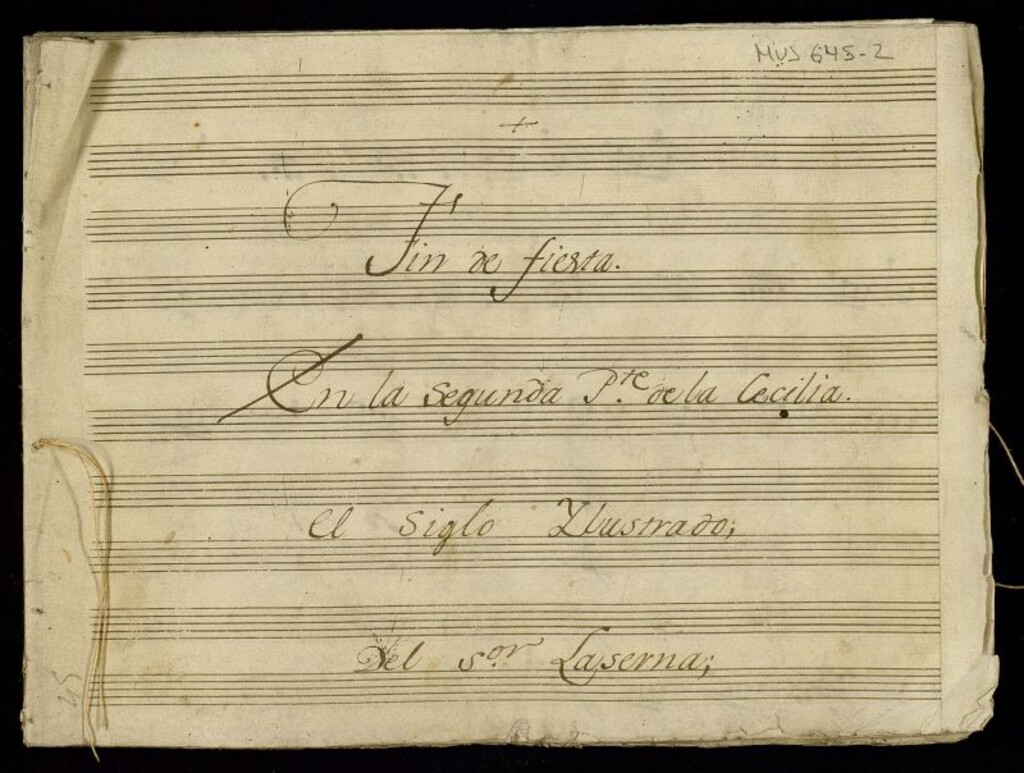 MUS 645-2
+
Fin de fiesta.
En la segunda P.te de la Cecilia.
el siglo Ylustrado;
Del s.or Laserna;